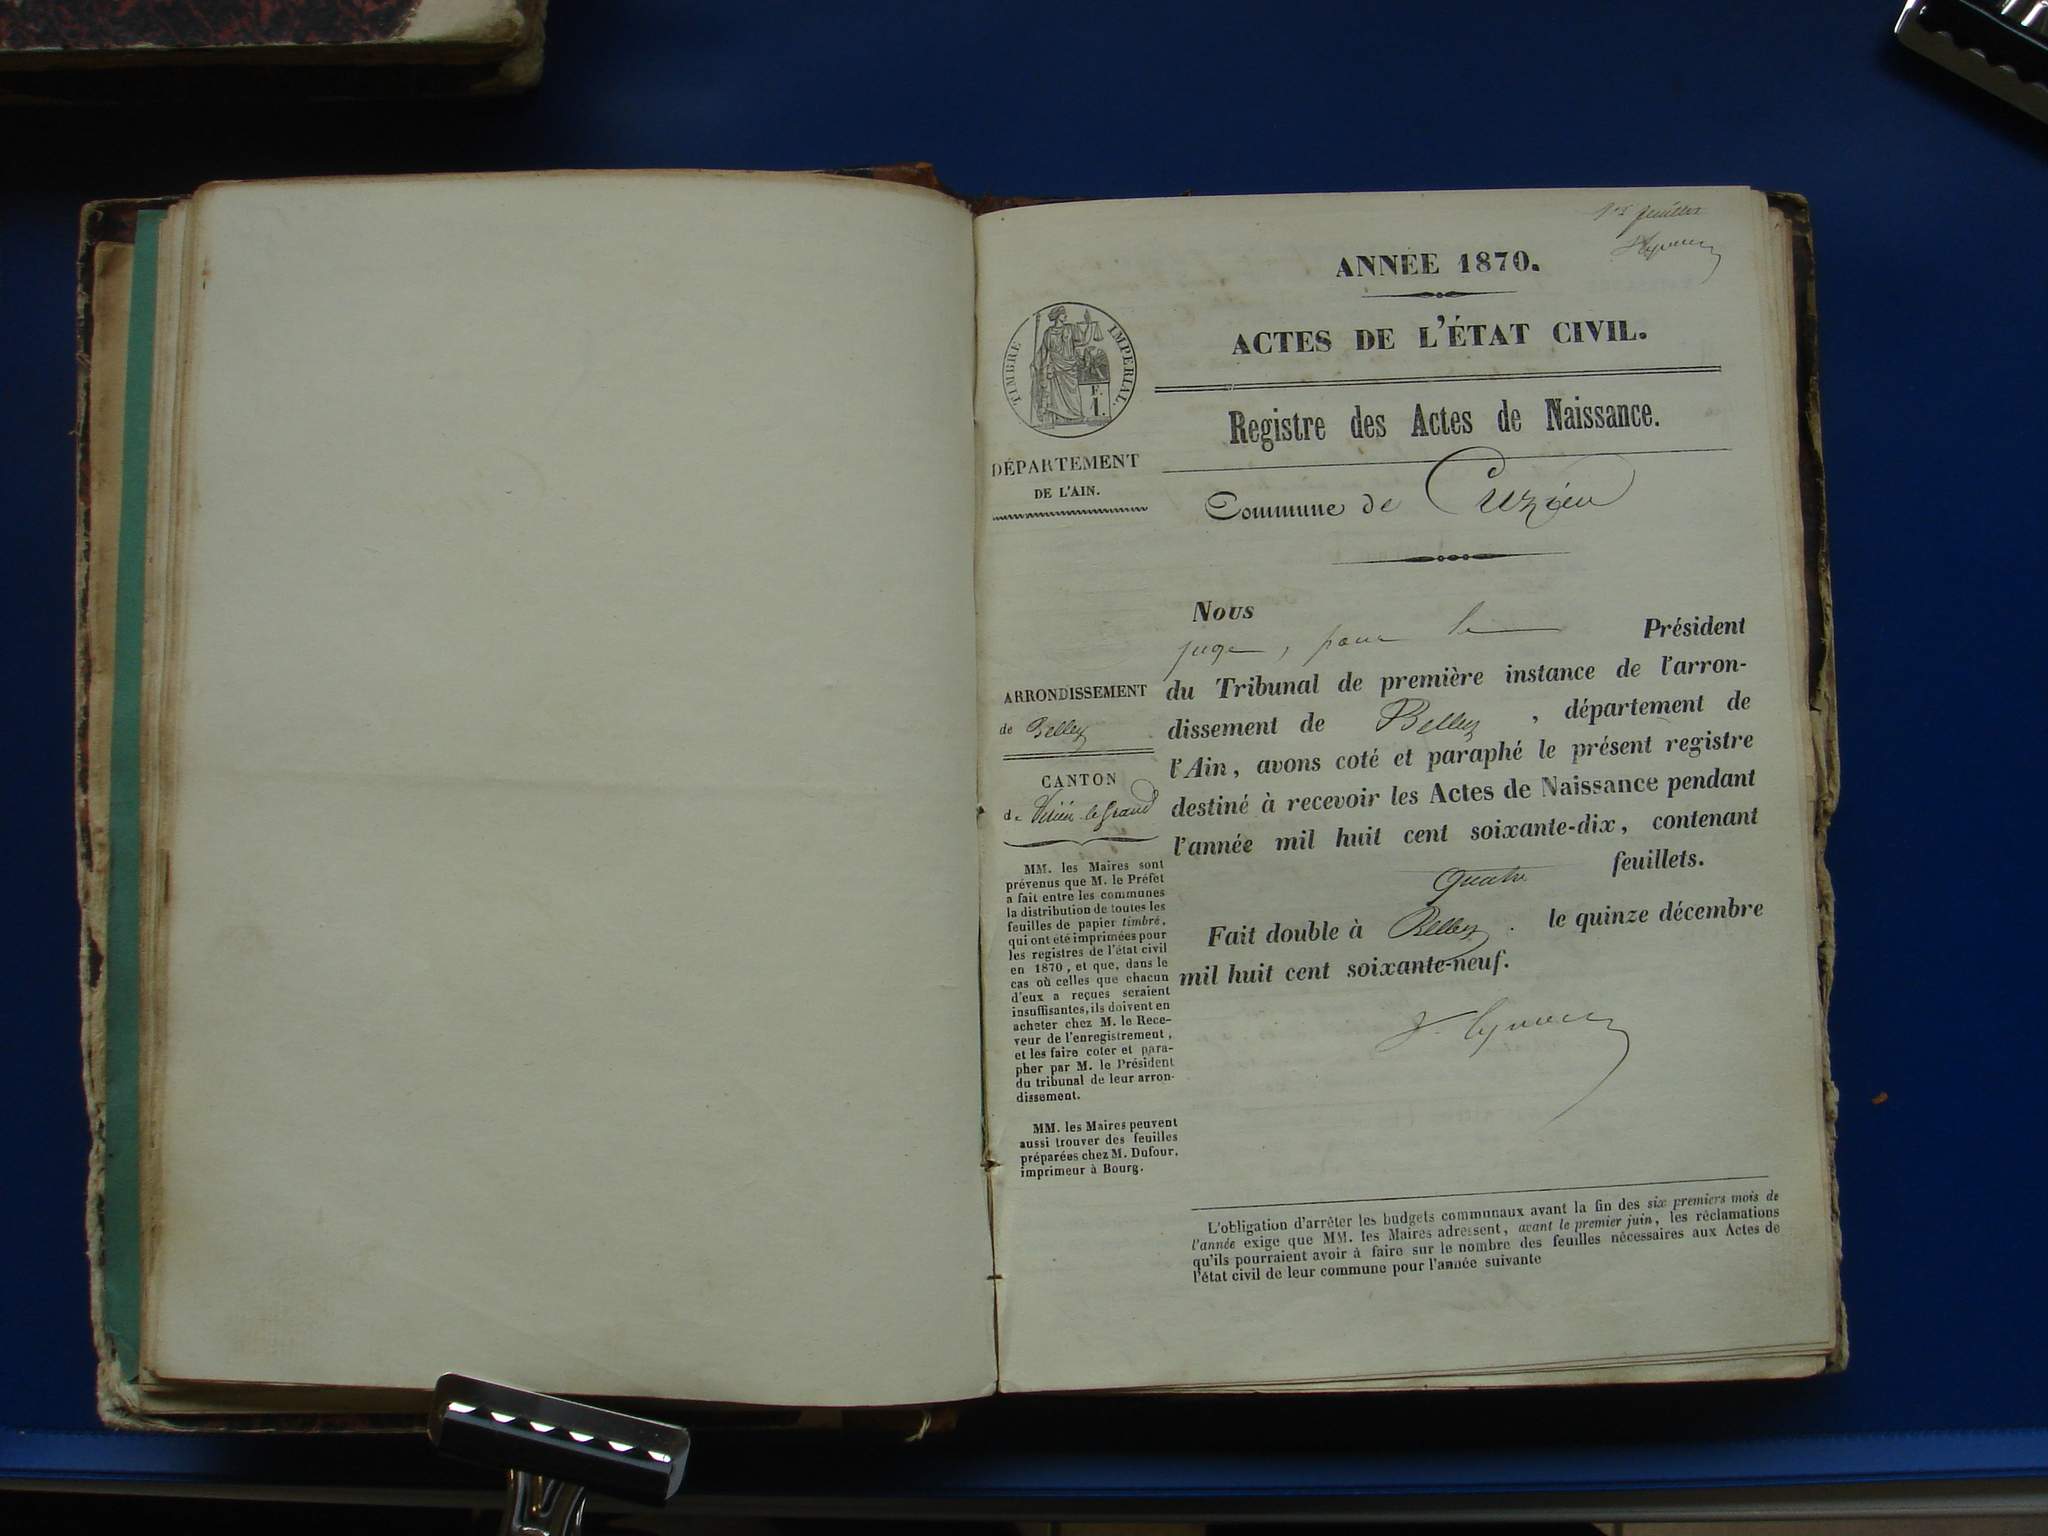 1er feuillet
ANNÉE 1870.
ACTES DE L'ÉTAT CIVIL.
TIMBRE IMPERIAL.
F.
1.
Registre des Actes de Naissance.
DÉPARTEMENT
DE L'AIN.
Commune de Cuzieu
ARRONDISSEMENT
de Belley
CANTON
de Virieu-le-Grand
MM. les Maires sont
prévenus que M. le Préfet
a fait entre les communes
la distribution de toutes les
feuilles de papier timbré,
qui ont été imprimées pour
les registres de l'état civil
en 1870, et que, dans le
cas où celles que chacun
d'eux a reçues seraient
insuffisantes, ils doivent en
acheter chez M. le Rece-
veur de l'enregistrement,
et les faire coter et para-
pher par M. le Président
du tribunal de leur arron-
dissement.
MM. les Maires peuvent
aussi trouver des feuilles
préparées chez M. Dufour,
imprimeur à Bourg.
Nous
juge, pour le Président
du Tribunal de première instance de l'arron-
dissement de Belley, département de
l'Ain, avons coté et paraphé le présent registre
destiné à recevoir les Actes de Naissance pendant
l'année mil huit cent soixante-dix, contenant
quatre feuillets.
Fait double à Belley. le quinze décembre
mil huit cent soixante-neuf.
L'obligation d'arrêter les budgets communaux avant la fin des six premiers mois de
l'année exige que MM. les Maires adressent, avant le premier juin, les réclamations
qu'ils pourraient avoir à faire sur le nombre des feuilles nécessaires aux Actes de
l'état civil de leur commune pour l'année suivante